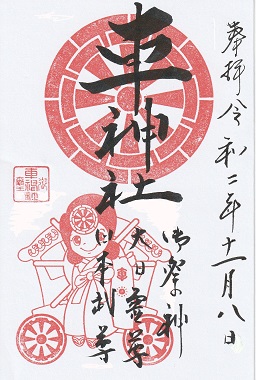 奉拝令和二年十一月八日
車神社
御祭の神
大日霊尊
日本武尊
車神社